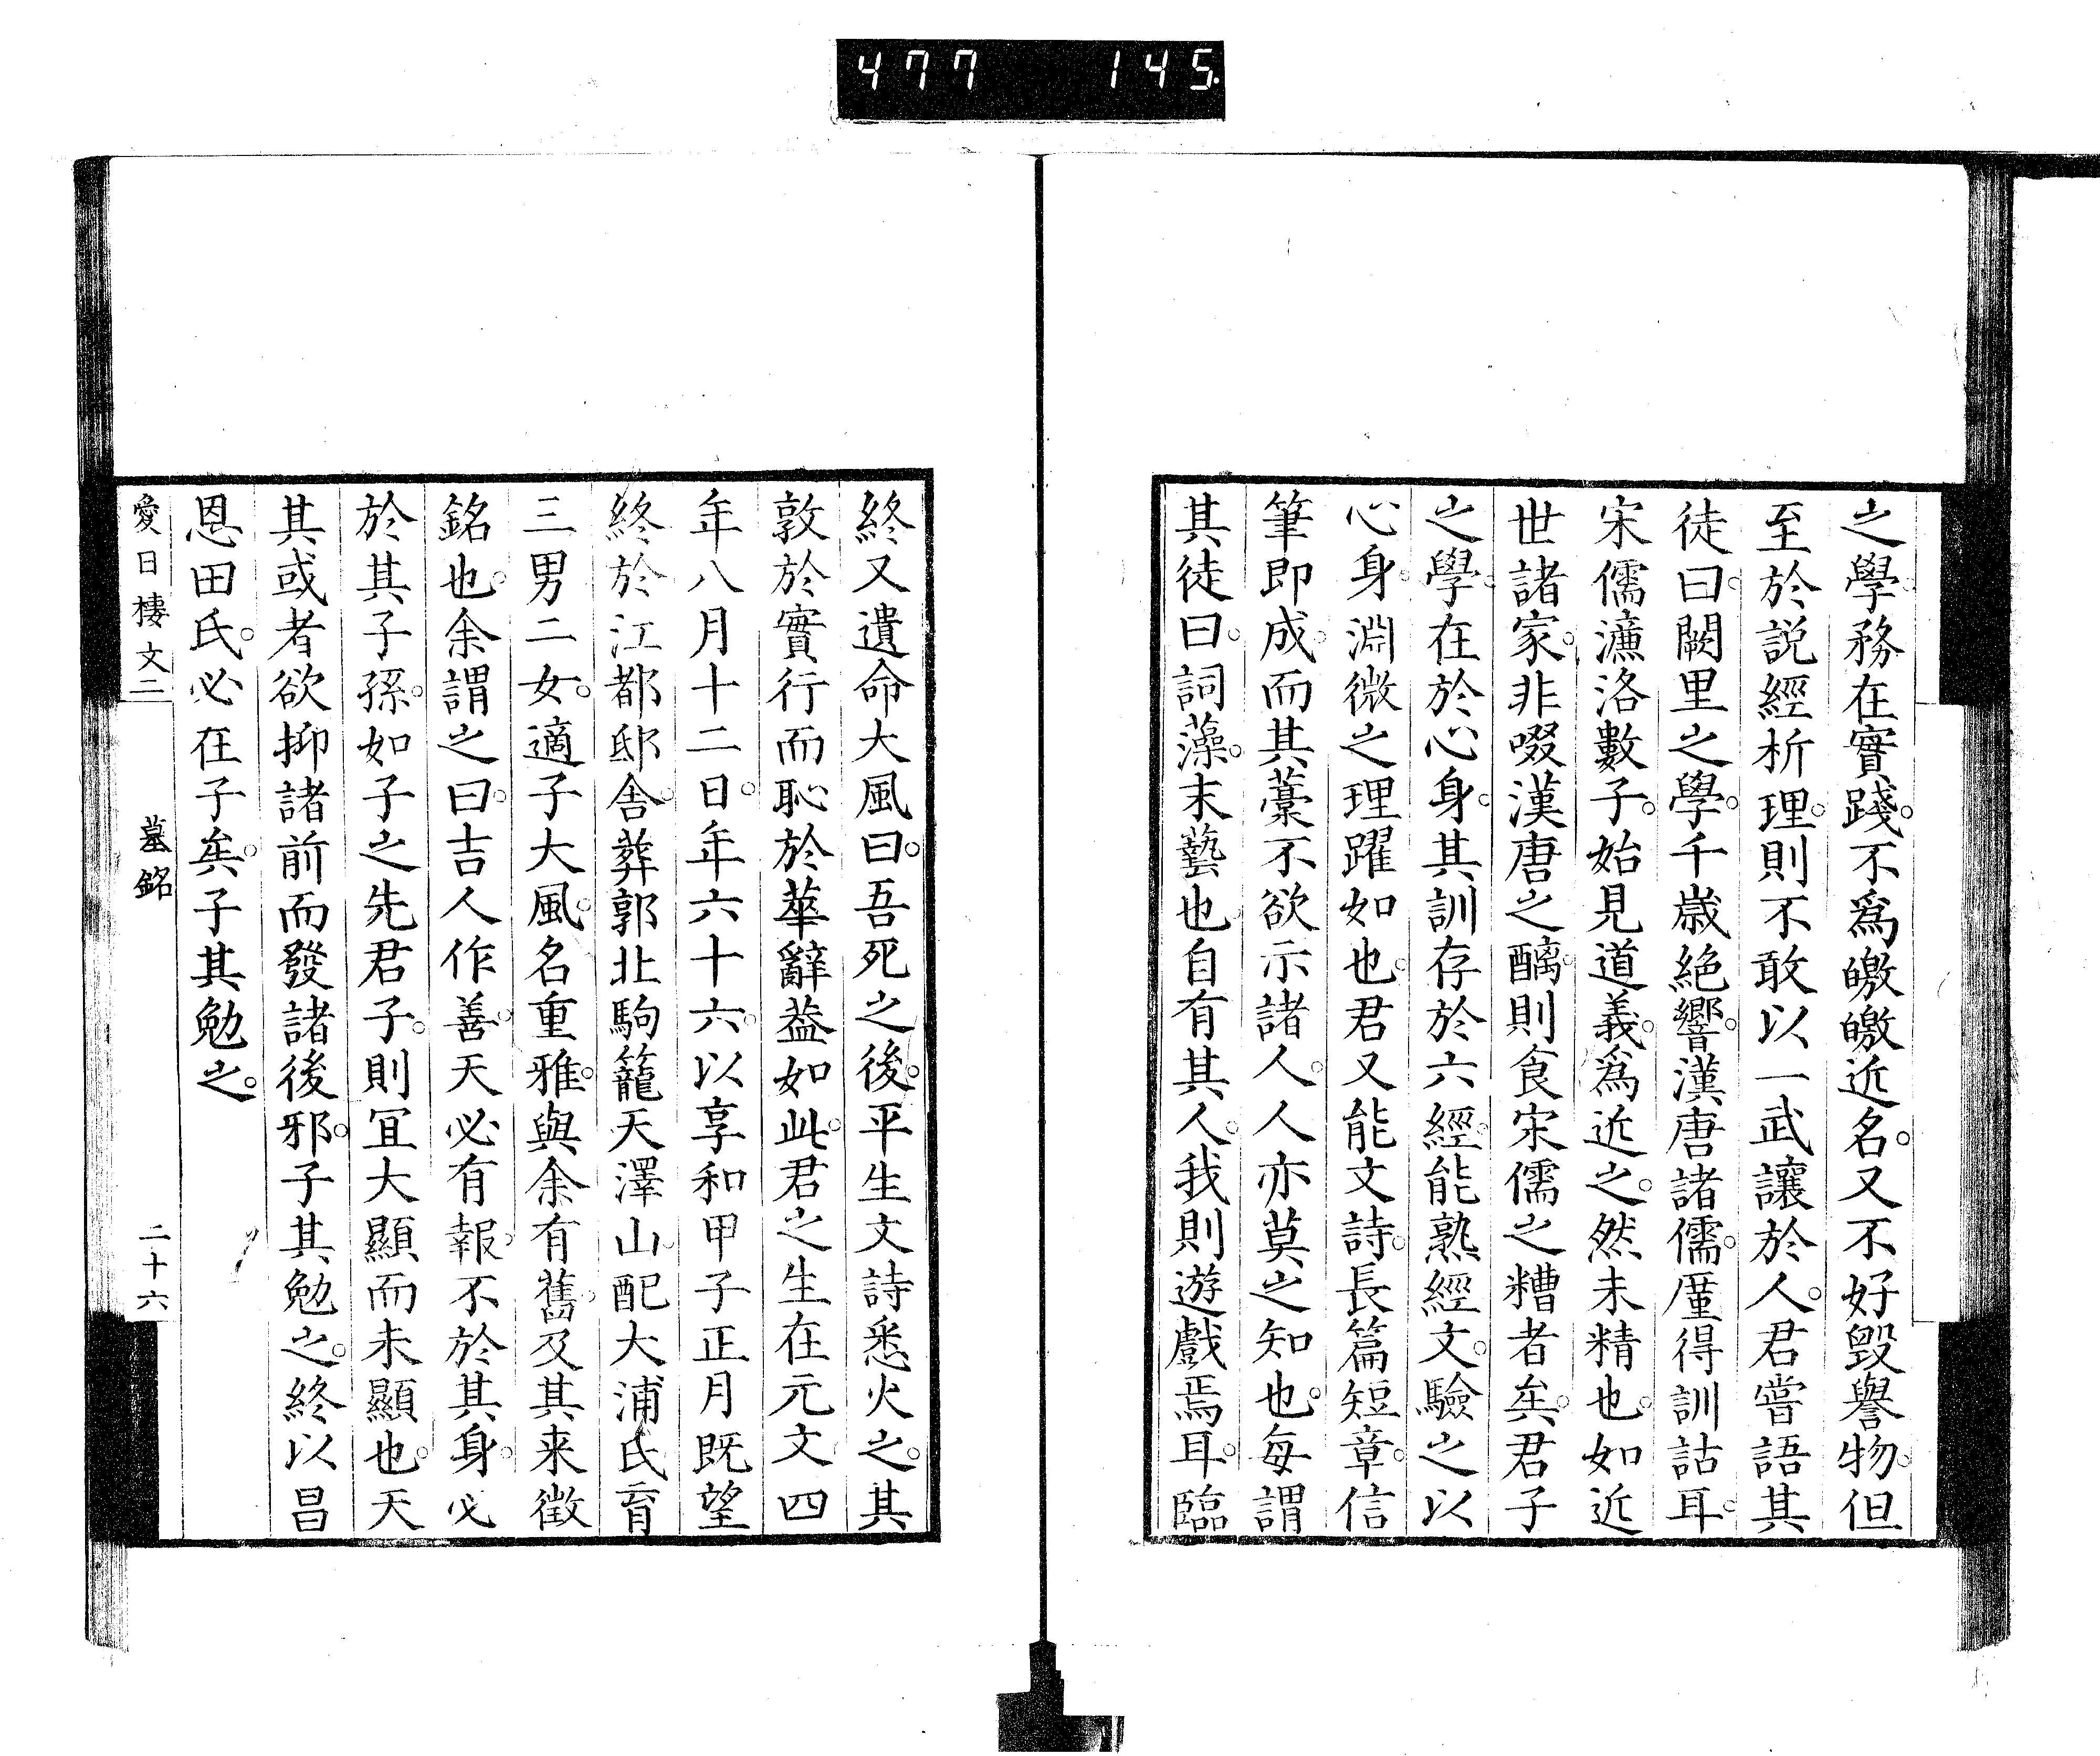 477 145
之學。務在實踐。不爲皦皦近名。又不好毀譽物。但
至於説經析理。則不敢以一武讓於人。君嘗語其
徒曰。闕里之學。千歳絶響。漢唐諸儒。厪得訓詁耳。
宋儒濂洛數子。始見道義。爲近之。然未精也。如近
世諸家。非啜漢唐之醨。則食宋儒之糟者矣。君子
之學。在於心身。其訓存於六經。能熟經文。驗之以
心身。淵微之理躍如也。君又能文詩。長篇短章。信
筆即成。而其藁不欲示諸人。人亦莫之知也。每謂
其徒曰。詞藻。末藝也。自有其人。我則遊戲焉耳。臨
終又遺命大風曰。吾死之後。平生文詩悉火之。其
敦於實行而恥於華辭葢如此。君之生在元文四
年八月十二日。年六十六。以享和甲子正月既望
終於江都邸舎。葬郭北駒籠天澤山。配大浦氏育
三男二女。適子大風。名重雅。與余有舊。及其来徴
銘也。余謂之曰。吉人作善。天必有報。不於其身。必
於其子孫。如子之先君子。則宜大顯而未顯也。天
其或者欲抑諸前而發諸後邪。子其勉之。終以昌
恩田氏。必在子矣。子其勉之。
愛日樓文二
墓銘
二十六